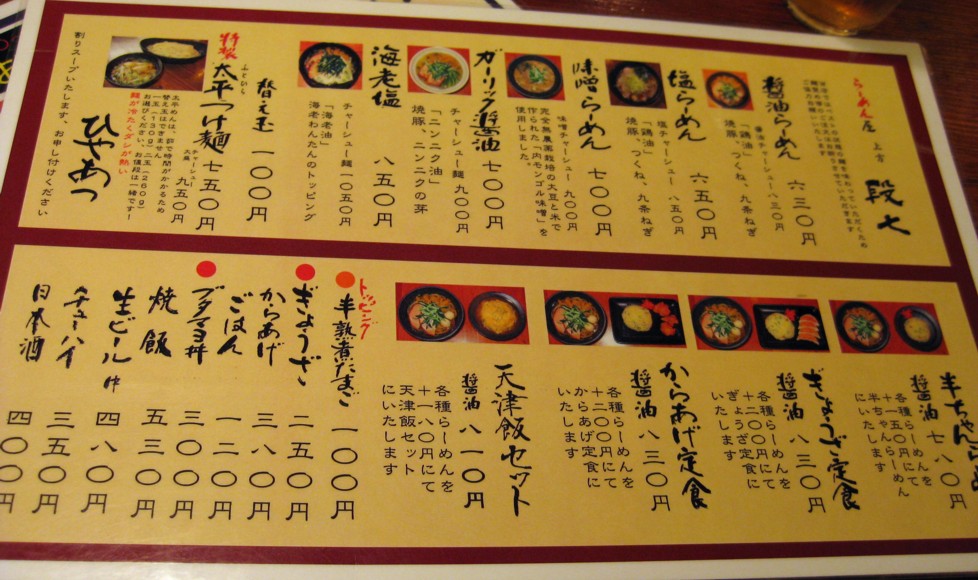 らーめん屋 上方 段七
醤油らーめん 六三〇円
醤油チャーシュー 八三〇円
「鶏油」
焼豚、つくね、九条ねぎ
塩らーめん 六五〇円
塩チャーシュー 八五〇円
「鶏油」
焼豚、つくね、九条ねぎ
味噌らーめん 七〇〇円
味噌チャーシュー 九〇〇円
完全無農薬栽培の大豆と米で
作られた「内モンゴル味噌」を
使用しました。
ガーリック醤油 七〇〇円
チャーシュー麺 九〇〇円
「ニンニク油」
焼豚、ニンニクの芽
海老塩 八五〇円
チャーシュー麺 一〇五〇円
「海老油」
海老わんたんのトッピング
替え玉 一〇〇円
特製
太平つけ麺 七五〇円
ふとひら
チャーシュー
九五〇円
太平めんは、許で時間がかかるため
替え玉はできません
一玉(130g)二玉(260g)
お選びください。お値段は一緒です!
麺が冷たくダシが熱い
ひやあつ
割りスープいたします、お申し付けください
半ちゃんら
醤油 七八〇円
各種らーめんを
+一五〇円にて
半ちゃんらーめん
にいたします
ぎょうざ定食
醤油 八三〇円
各種らーめんを
+二〇〇円にて
ぎょうざ定食に
いたします
からあげ定食
醤油 八三〇円
各種らーめんを
+二〇〇円にて
からあげ定食に
いたします
天津飯セット
醤油 八一〇円
各種らーめんを
+一八〇円にて
天津飯セット
にいたします
トッピング
半熟煮たまご 一〇〇円
ぎょうざ 二五〇円
からあげ 三八〇円
ごはん 一二〇円
ブタマヨ丼 三〇〇円
焼飯 五三〇円
生ビール 中 四八〇円
チューハイ 三五〇円
日本酒 四〇〇円